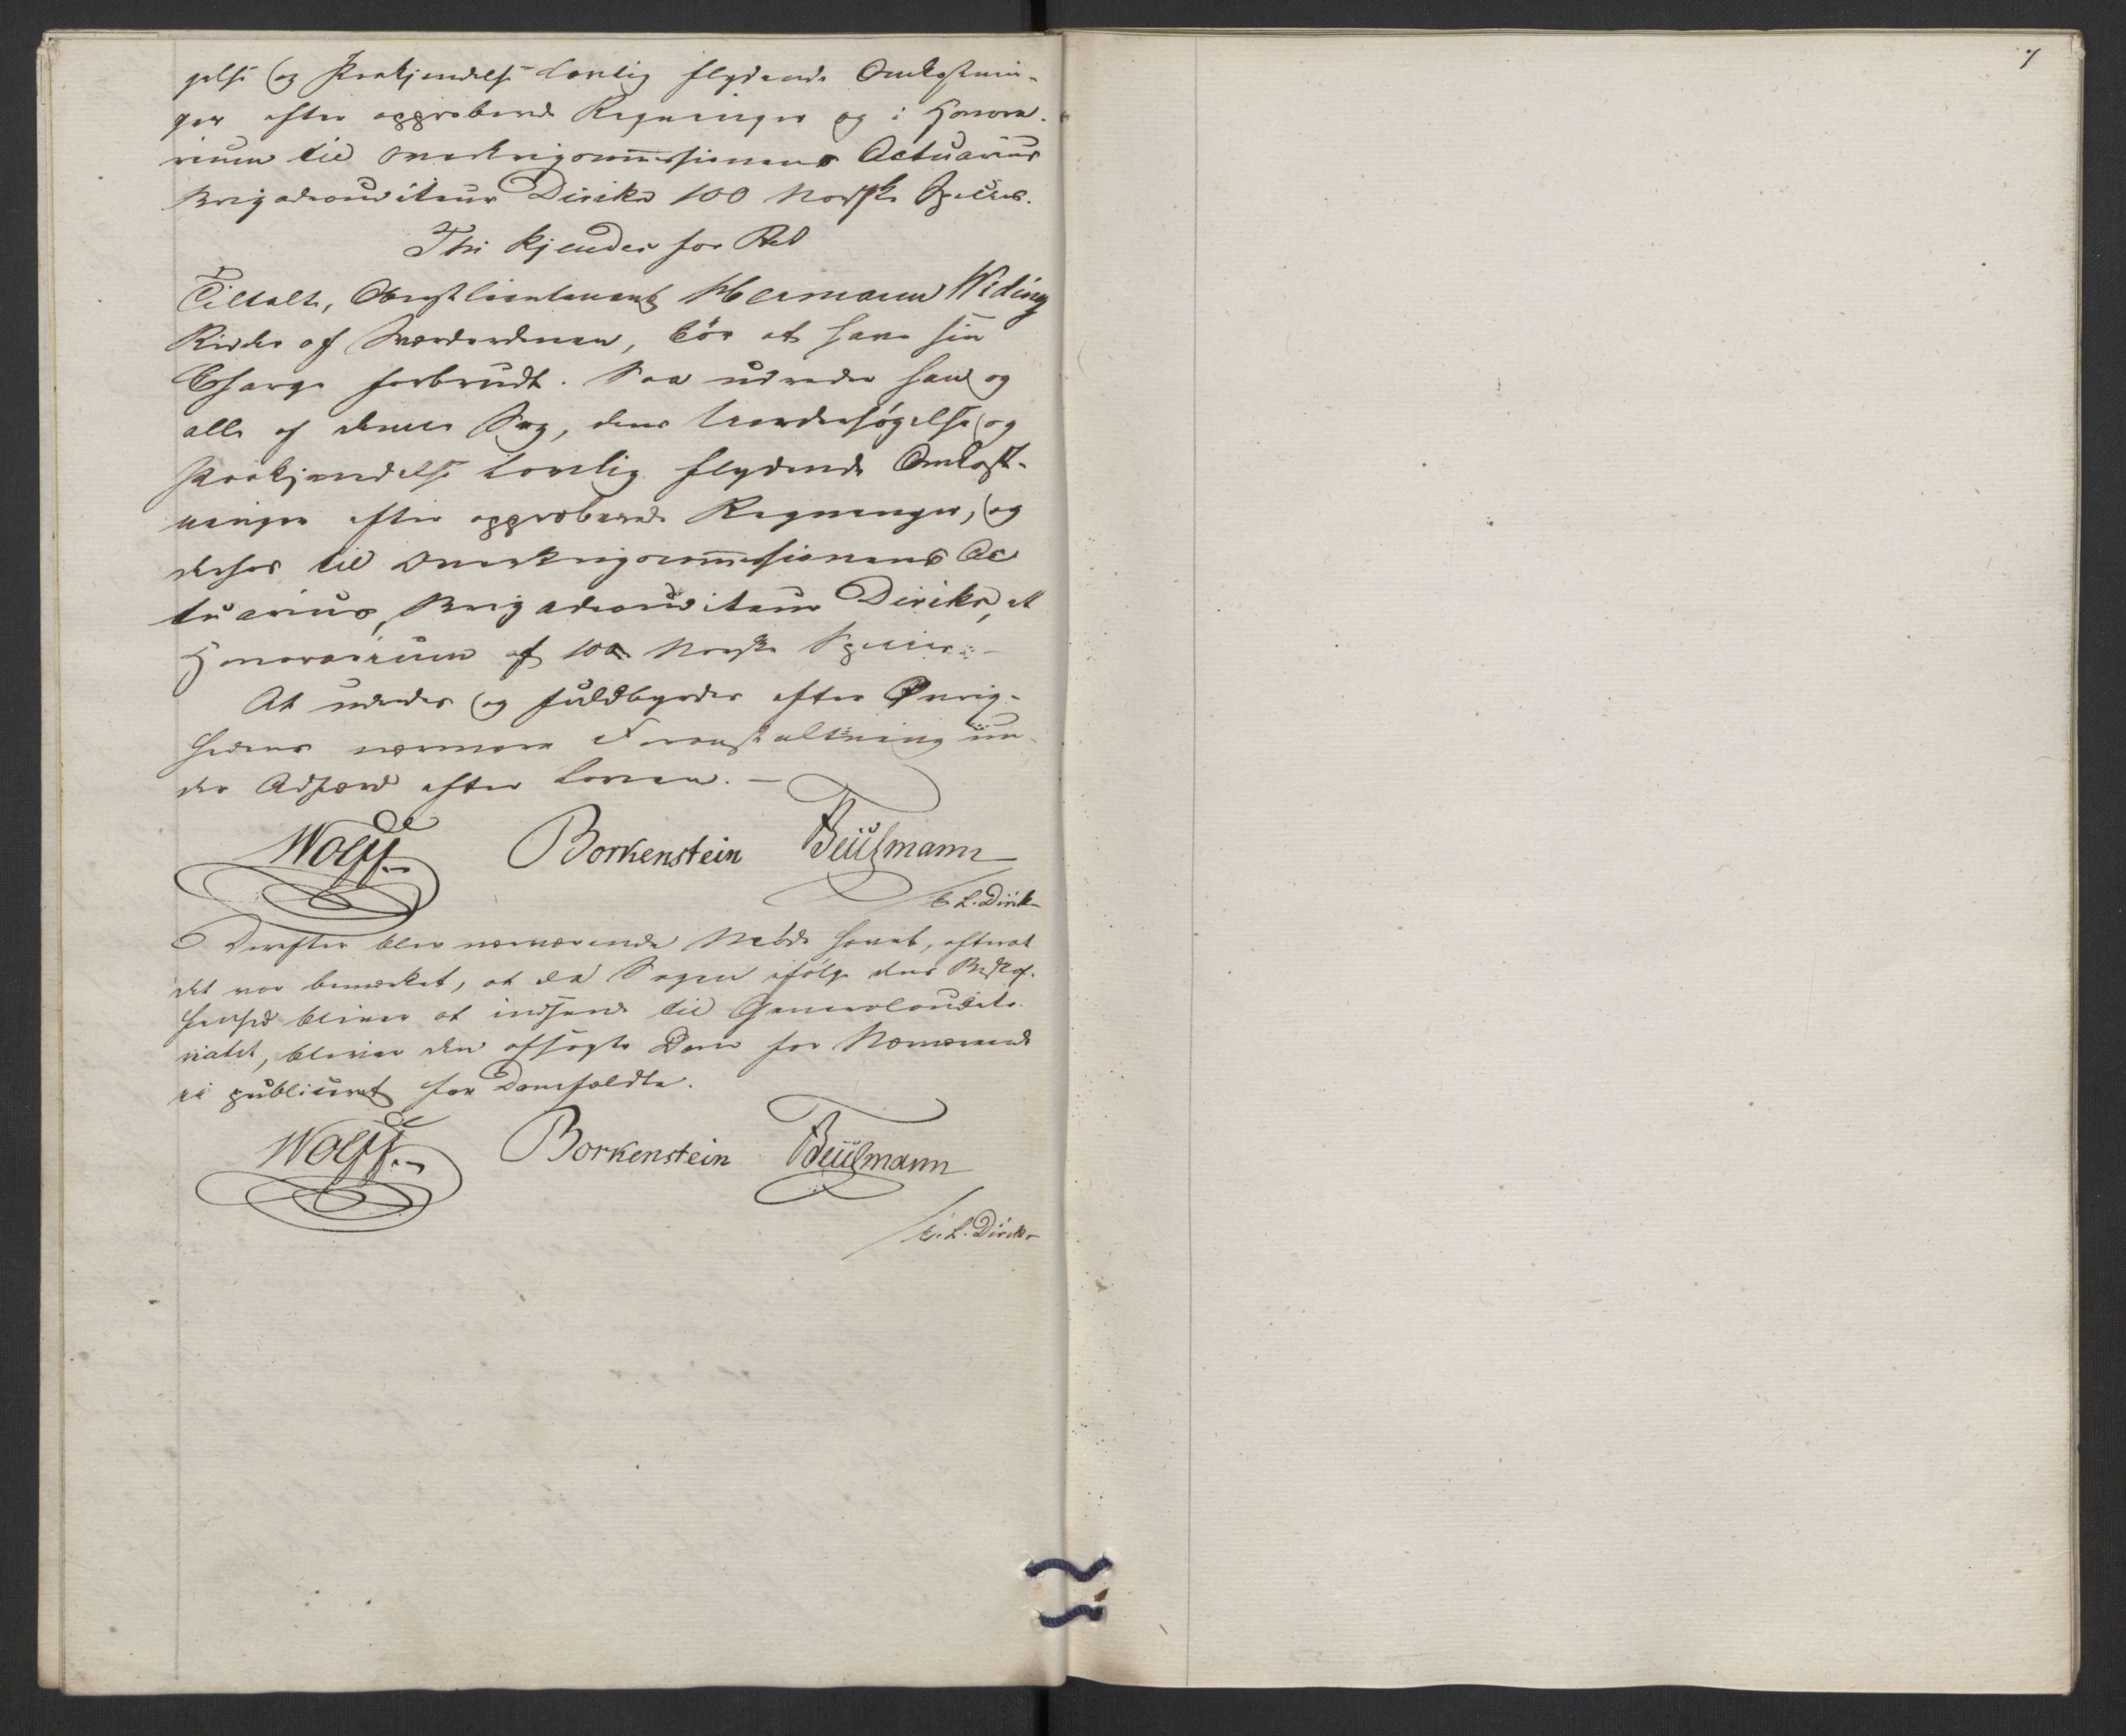 gelse og Paakjendelse lovlig flydende Omkostnin-
ger efter approberede Regninger og i Honora-
rium til Overkrigscommissionens Actuarius
Brigadeauditeur Diriks 100 Norske Species.
Thi kjendes for Ret
Tiltalte, Oberstlieutenant Hermann Widing
Ridder af Sværdordenen, bör at have sin
Charge forbrudt. Saa udreder han og
alle af denne Sag, dens Undersøgelse og
Paakjendelse lovlig flydende Omkost-
ninger efter approberede Regninger, og
derhos til Overkrigscommissionens Ac
tuarius, Brigadeauditeur Diriks, et
Honorarium af 100 Norske Species.
At udredes og fuldbyrdes efter Øvrig-
hedens nærmere Foranstaltning un-
der Adfærd efter Loven. —
Wolff Borkenstein Beülmann
C. L. Diriks
Derefter blev nærværende Möde hævet, efterat
det var bemærket, at da Sagen ifølge dens Beskaf-
fenhed bliver at indsende til Generalaudito-
riatet, bliver den afsagte Dom for Nærværende
ei publiceret for Domfældte.
Wolff Borkenstein Beülmann
C. L. Diriks